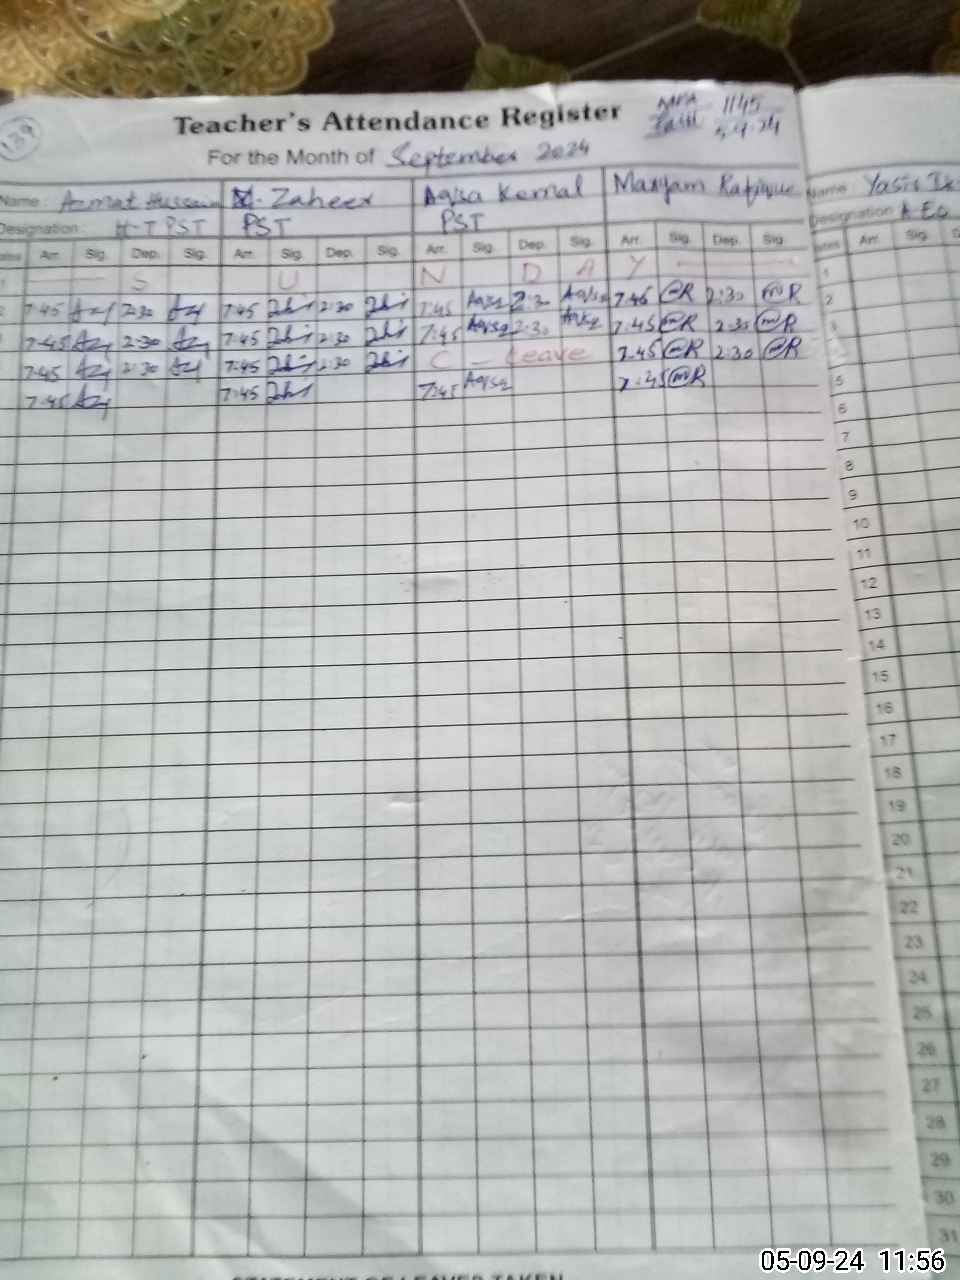 139
Teacher's Attendance Register
MEA 1145
5.9.24
For the Month of September 2024
Name: Azmat Hussain M. Zaheer Aqsa Kemal Maryam Rafique Name: Yasir
Designation: H-T PST PST PST Designation: AEO
Dates Arr. Sig. Dep. Sig. Arr. Sig. Dep. Sig. Arr. Sig. Dep. Sig. Arr. Sig. Dep. Sig. Dates Arr. Sig.
1 S U N D A Y 1
2 7:45 Azm 2:30 Azm 7:45 Zhr 2:30 Zhr 7:45 Aqsa 2:30 Aqsa 7:45 mR 2:30 mR 2
7:45 Azm 2:30 Azm 7:45 Zhr 2:30 Zhr 7:45 Aqsa 2:30 Aqsa 7:45 mR 2:30 mR 3
7:45 Azm 2:30 Azm 7:45 Zhr 2:30 Zhr C - Leave 7:45 mR 2:30 mR
7:45 Azm 7:45 Zhr 7:45 Aqsa 7:45 mR 5
6
7
8
9
10
11
12
13
14
15
16
17
18
19
20
21
22
23
24
25
26
27
28
29
30
31
STATEMENT OF LEAVES TAKEN
05-09-24 11:56